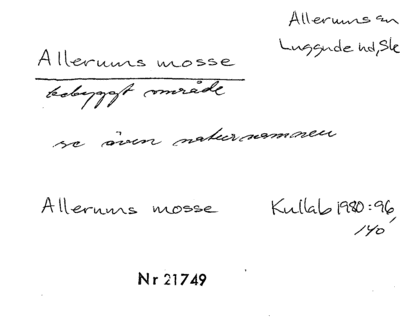 Allerums sn
Luggude hd, Sk
Allerums mosse
bebyggt område
se även naturnamnen
Allerums mosse Kullab 1980:96,
140
Nr 21749